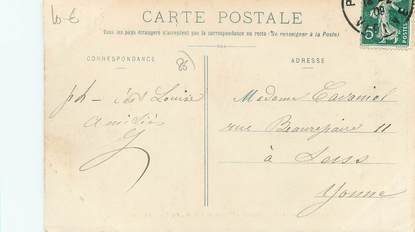 10 €
CARTE POSTALE
Tous les pays étrangers n'acceptent pas la correspondance au recto (Se renseigner à la Poste)
CORRESPONDANCE
86
ADRESSE
Louise
Amitiés
Madame
rue Beaurepaire 11
à Sens
Yonne
5